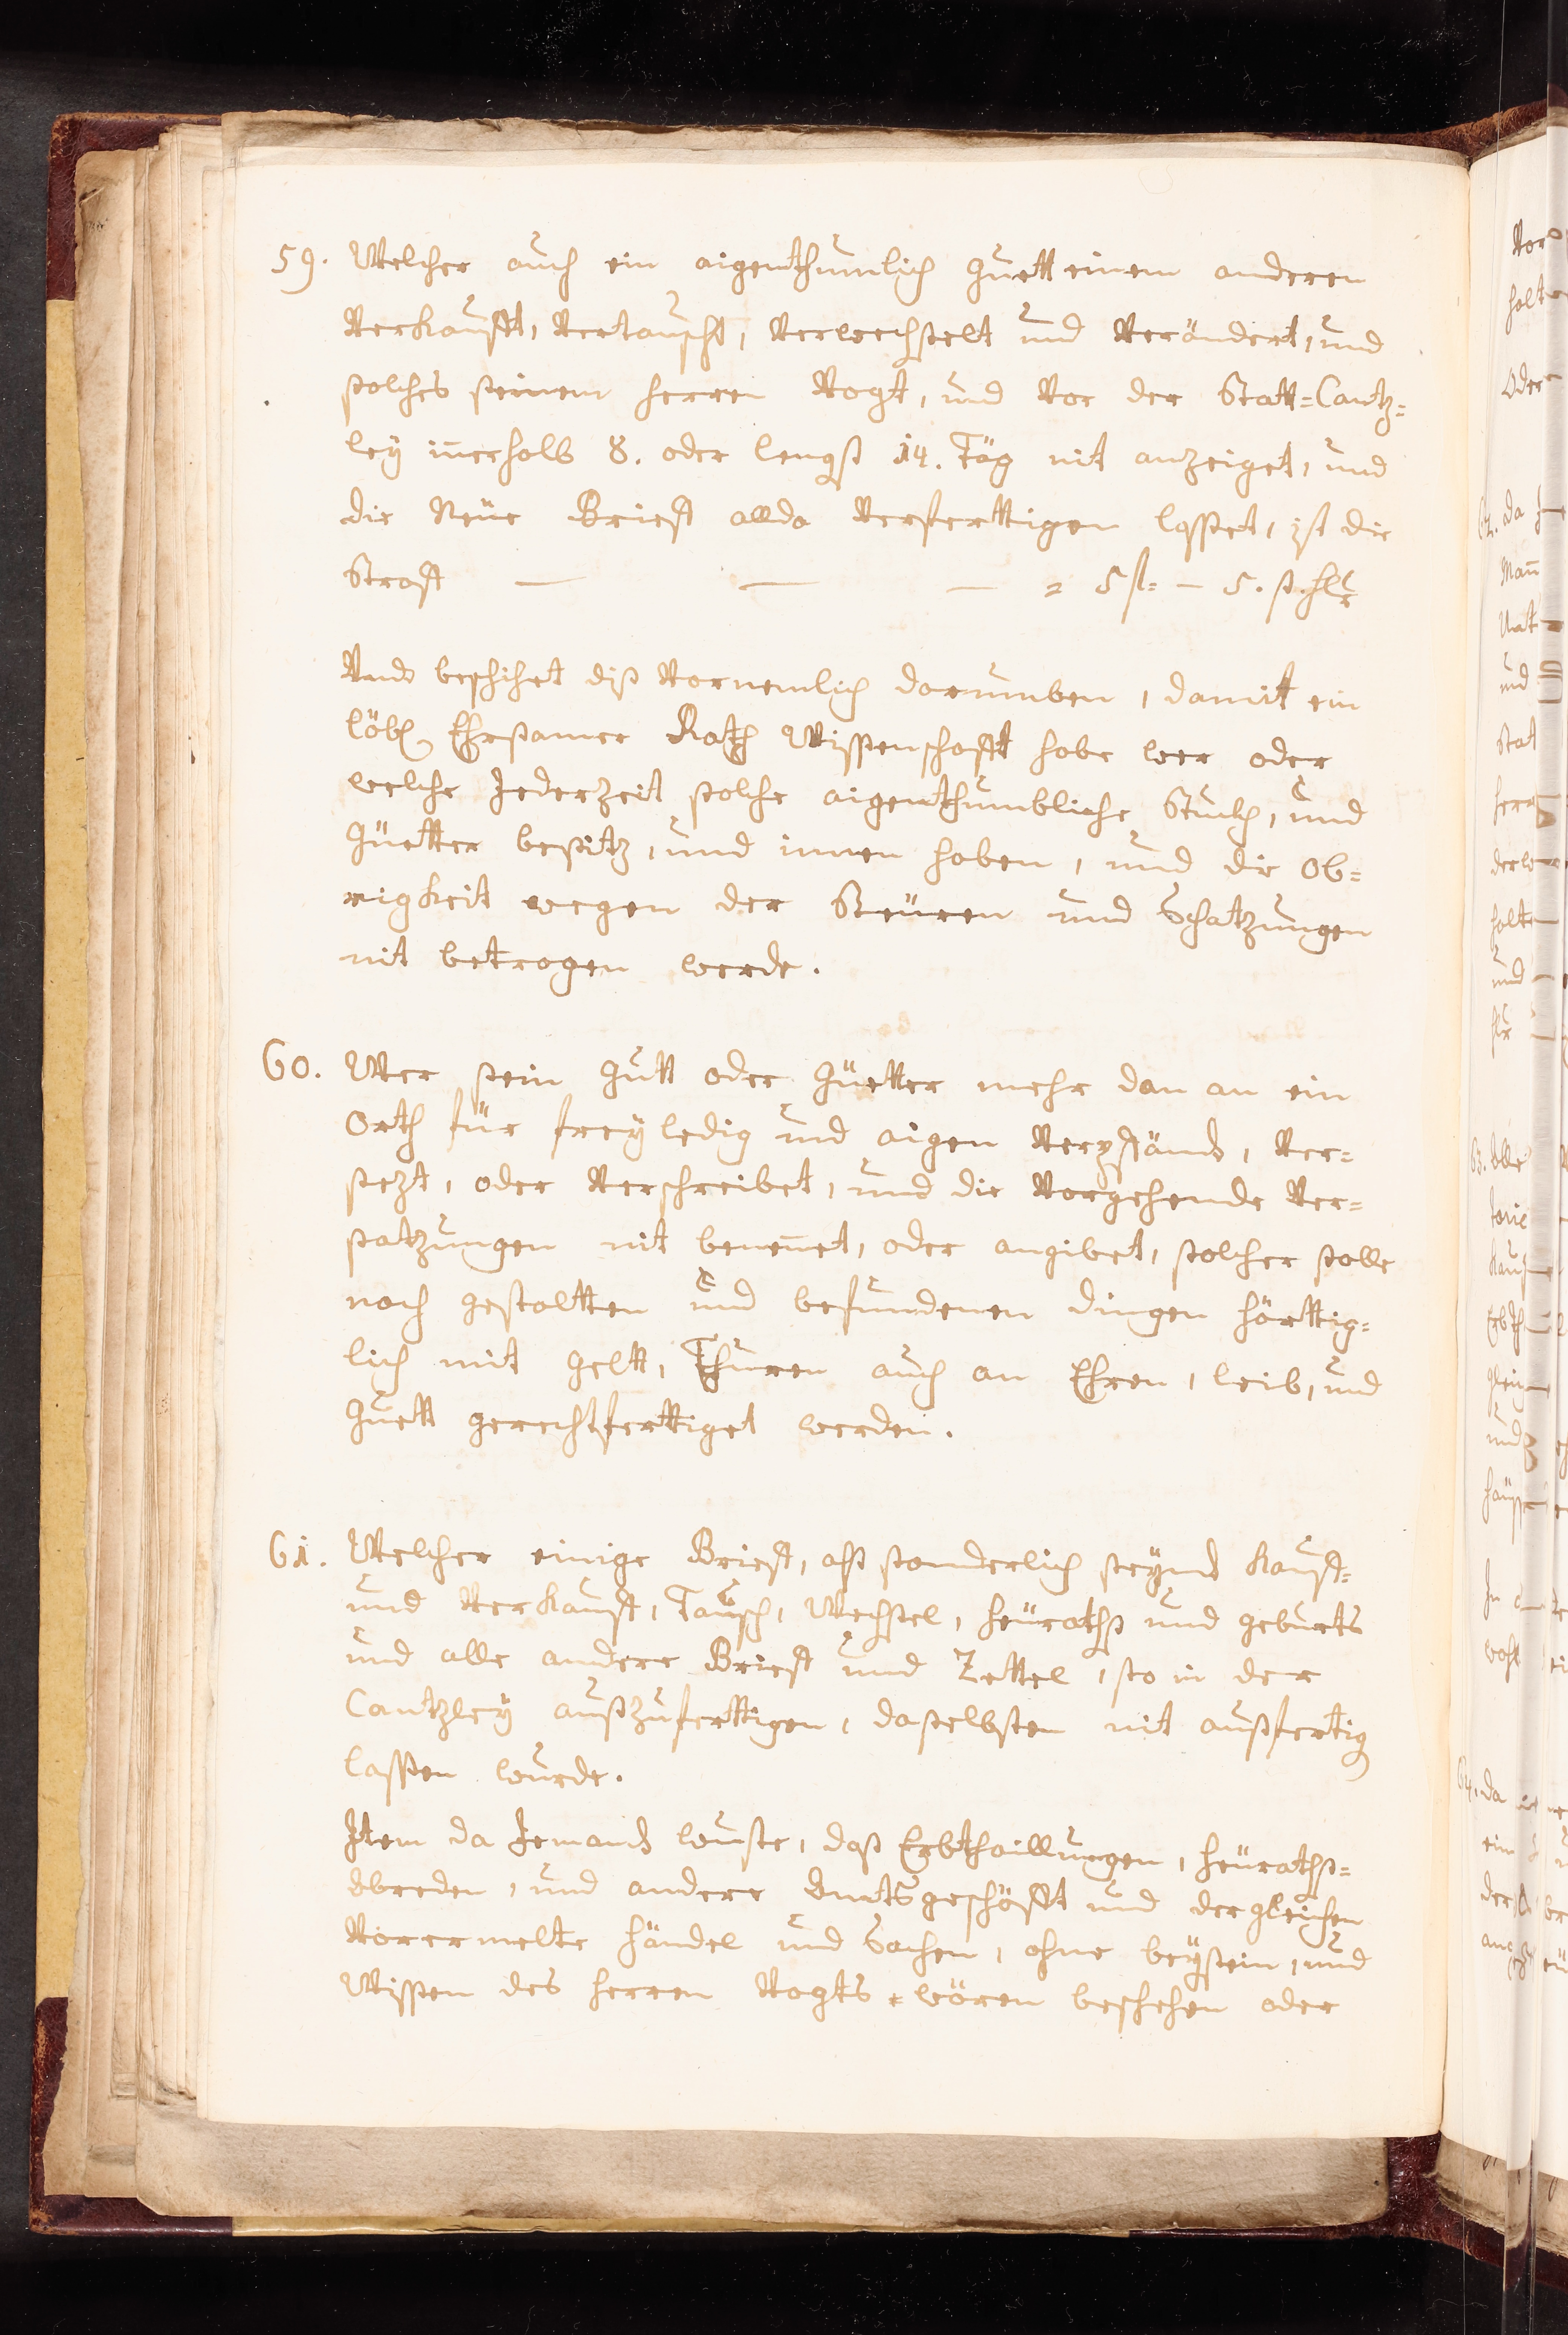 59. Welcher auch ein aigenthumlich Guett einem anderen
Verkaufft, Vertauscht, Verwechselt und Verändert, und
solches seinem Herren Vogt, und Vor der Statt=Cantz=
leÿ iñerhalb 8. oder lengst 14. Täg nit anzeiget, und
die Neüe Brieff allda Verferttigen lasset, ist die
Straff — — — = 5 fl= — 5. ß. hlr
Vnd beschihet diß Vornemlich darumben, damit ein
löbl. Ehrsamer Rath Wissenschafft habe wer oder
welche Jederzeit solche aigenthumbliche Stuckh, und
Güetter besitz, und innen haben, und die Ob=
rigkeit wegen der Steüren und Schatzungen
nit betrogen werde.
60. Wer sein Gutt oder Güetter mehr dan an ein
Orth für freÿ ledig und aigen Verpfänd, Ver=
sezt, oder Verschreibet, und die Vorgehende Ver=
satzungen nit beneñet, oder angibet, solcher solle
nach gestaltten und befundenen dingen härttig=
lich mit Gelt, Thuren auch an Ehren, leib, und
Guett gerechtferttiget werden.
61. Welcher einige Brieff, alß sonderlich seÿnd Kauff=
und Verkauff, Tausch, Wechsel, heüraths und geburts
und alle andere Brieff und Zettel, so in der
Cantzleÿ außzuferttigen, daselbsten nit außfertig
lassen wurde.
Item da Jemand wuste, daß Erbthaillungen, heüraths=
Abreden, und andere Ambtsgeschäfft und dergleichen
Vorermelte händel und Sachen, ohne beÿsein, und
Wissen des Herren Vogts wären beschehen oder